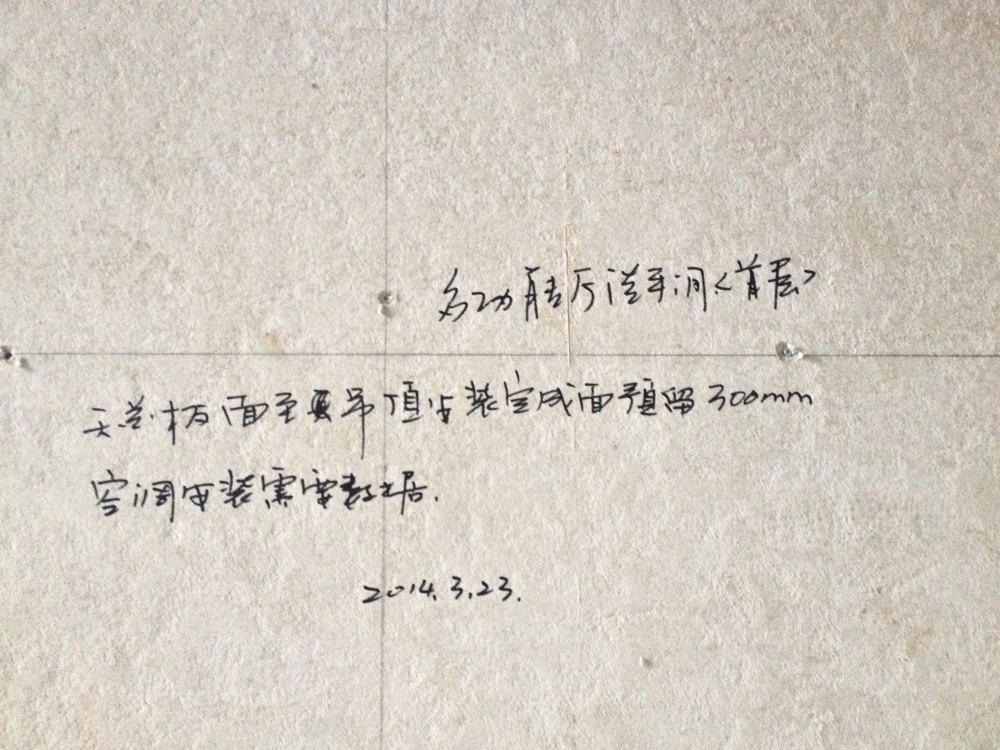 多功能厅洽手间<首层>
天花板面至吊顶安装完成面预留300mm
空调安装需要数据.
2014.3.23.